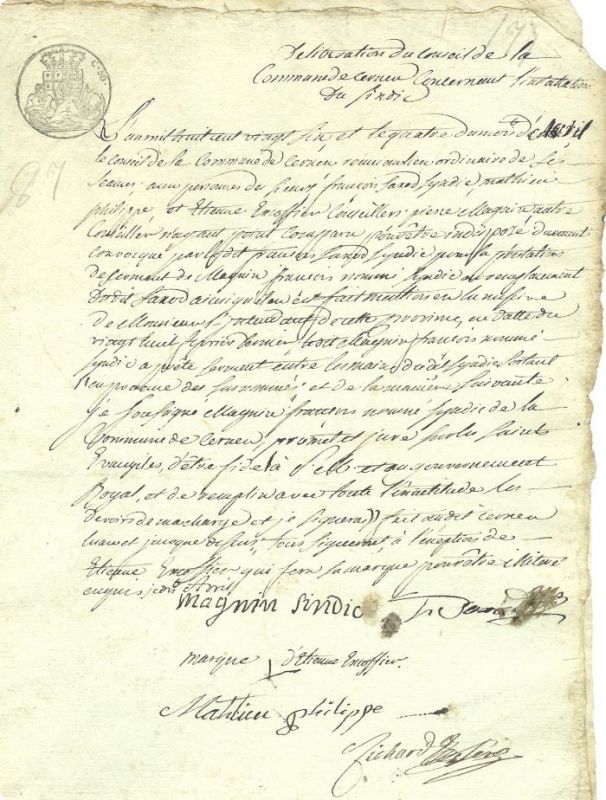 C. 50.
Délibération du Conseil de la
Commune de Cernex Concernant l'installation
Du Sindic
L'an mil huit cent vingt six et le quatre du mois d'Avril
le Conseil de la Commune de Cernex reuni au lieu ordinaire de ses
seances aux personnes des sieurs françois Syndic, mathieu
philippe, et Etienne Encoffier Conseillers pierre Magnin autre
Conseiller n'ayant point Comparu pour être indisposé duement
convoqué par ledit françois Syndic pour la prestation
de serment de Magnin françois nommé Syndic en remplacement
dudit ainsi que l'en est fait mention en la missive
de Monsieur l'intendant de cette province, en datte du
vingt huit fevrier dernier, ledit Magnin françois nommé
Syndic a prêté serment entre les mains dudit Syndic sortant
en presence des susnommés et de la manière suivante
je soussigné Magnin françois nommé Syndic de la
Commune de Cernex, promet et jure sur les Saints
Evangiles, d'être fidel à S. M. et au gouvernement
Royal, et de remplir avec toute l'exactitude les
devoirs de ma charge et je signera)) fait audit Cernex
l'an et jour que dessus, tous signeront, à l'exception de
Etienne Encoffier qui fera sa marque pour être iliteré
enquis Avril
Magnin Sindic
marque d'Etienne Encoffier.
Mathieu philippe
Richard
87